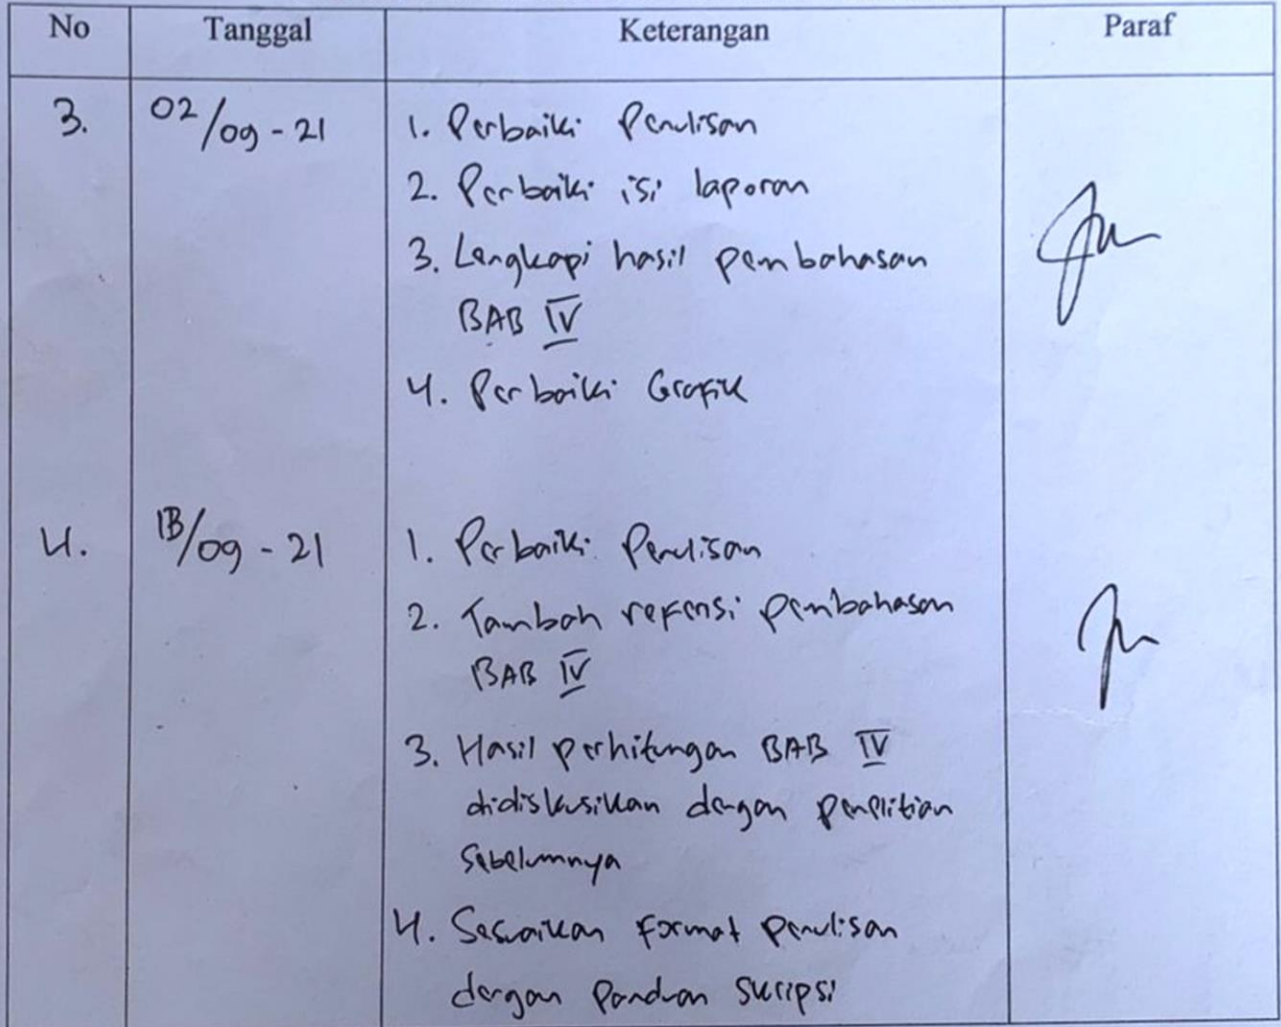 No Tanggal Keterangan Paraf
3. 02/09-21 1. Perbaiki Penulisan
2. Perbaiki isi laporan
3. Lengkapi hasil pembahasan
BAB IV
4. Perbaiki Grafik
4. 13/09-21 1. Perbaiki Penulisan
2. Tambah refensi pembahasan
BAB IV
3. Hasil perhitungan BAB IV
didiskusikan dengan penelitian
sebelumnya
4. Sesuaikan format penulisan
dengan Panduan Skripsi